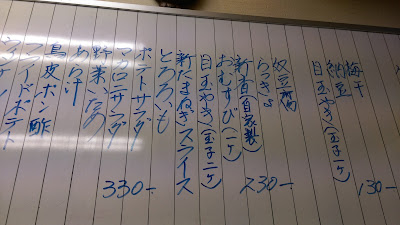 梅干
納豆
目玉やき(玉子一ケ)
130-
奴豆腐
らっきょ
新香(自家製)
おむすび(一ケ)
目玉やき(玉子二ケ)
230-
新たまねぎスライス
とろろいも
ポテトサラダ
マカロニサラダ
野菜いため
あら汁
鳥皮ポン酢
フライドポテト
330-